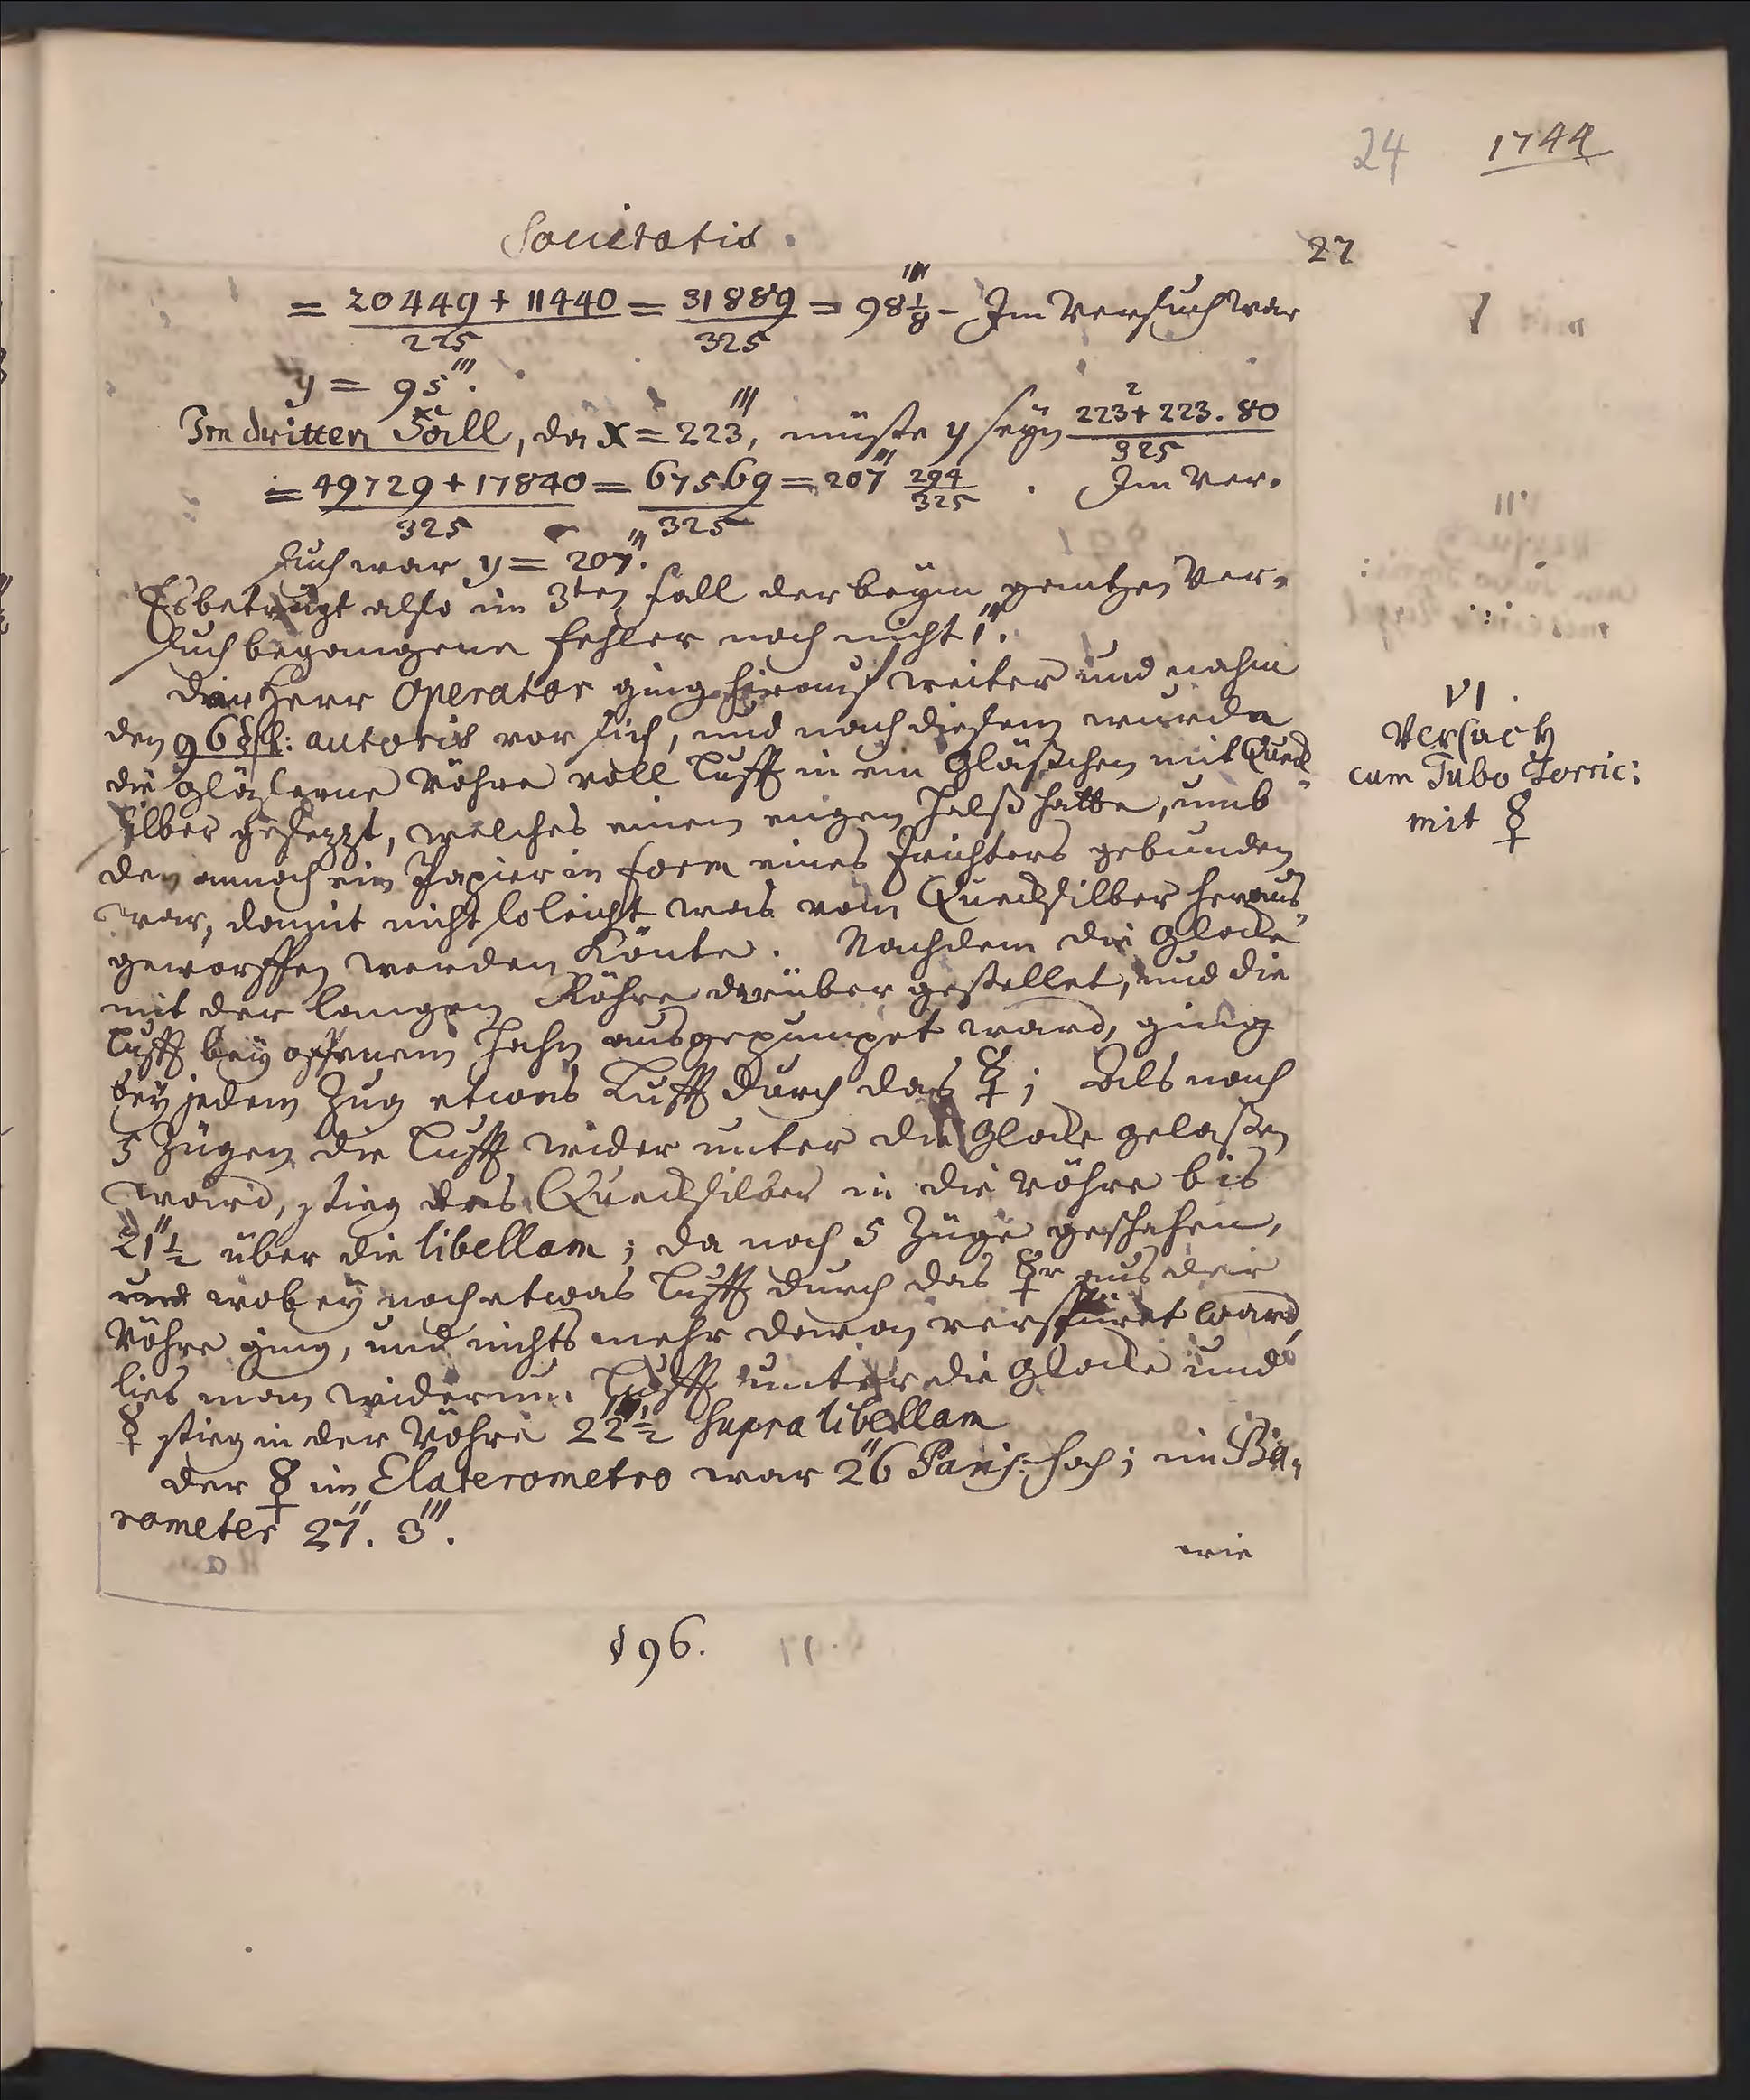 24 1744
Societatis. 27
= 20449 + 11440 / 225 = 31889 / 325 = 98 1/8 ''' - Im Versuch war
y = 95'''.
Im dritten Fall, da x = 223''', müste y seyn 223² + 223. 80 / 325
= 49729 + 17840 / 325 = 67569 / 325 = 207''' 294/325. Im Ver-
such war y = 207'''.
Es beträgt also im 3ten Fall der beym gantzen Ver-
such begangene Fehler noch nicht 1'''.
Der Herr Operator ging hierauf weiter und nahm
den 96 §ph: autoris vor sich, und nach diesem wurde
die gläserne Röhre voll Lufft in ein Gläschen mit Queck-
silber gesezzt, welches einen engen Halß hatte, umb
den annoch ein Papier in form eines Trichters gebunden
war, damit nicht so leicht was vom Quecksilber heraus-
geworffen werden könte. Nachdem die Glocke
mit der langen Röhre darüber gestellet, und die
Lufft bey offenem Hahn ausgepumpet ward, ging
bey jedem Zug etwas Lufft durch das ☿; Als nach
5 Zügen die Lufft wider unter die Glocke gelaßen
ward, stieg das Quecksilber in die Röhre bis
21'' 1/2 über die libellam; da noch 5 Züge geschahen,
und wobey noch etwas Lufft durch das ☿r aus der
Röhre ging, und nichts mehr davon verspüret ward,
lies man widerum Lufft unter die Glocke und
☿ stieg in der Röhre 22 1/2 supra libellam
der ☿ im Elaterometro war 26'' Paris: hoch; im Ba-
rometer 27''. 3'''.
wie
§ 96.
VI.
Versuch
cum Tubo Torric:
mit ☿